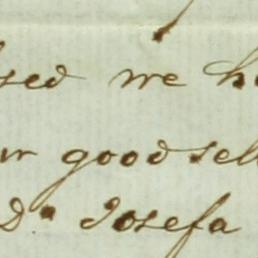 sed we h
ur good sell
Dª Josefa